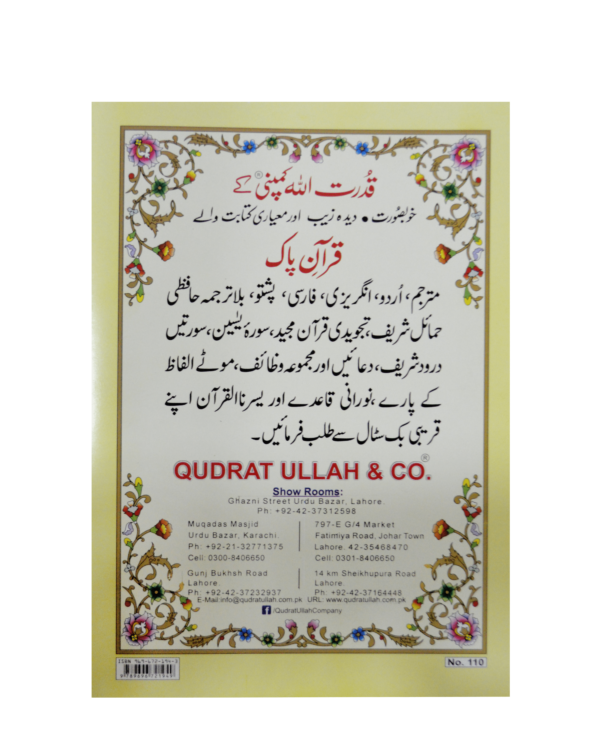 قُدرت اللہ کمپنی® کے
خوبصُورت • دیدہ زیب اور معیاری کتابت والے
قرآنِ پاک
مترجم، اُردو، انگریزی، فارسی، پشتو، بلا ترجمہ حافظی
حمائل شریف، تجویدی قرآن مجید، سورۂ یٰسین، سورتیں
درود شریف، دعائیں اور مجموعہ وظائف، موٹے الفاظ
کے پارے، نورانی قاعدے اور یسرنا القرآن اپنے
قریبی بک سٹال سے طلب فرمائیں۔
QUDRAT ULLAH & CO.®
Show Rooms:
Ghazni Street Urdu Bazar, Lahore.
Ph: +92-42-37312598
Muqadas Masjid
Urdu Bazar, Karachi.
Ph: +92-21-32771375
Cell: 0300-8406650
797-E G/4 Market
Fatimiya Road, Johar Town
Lahore. 42-35468470
Cell: 0301-8406650
Gunj Bukhsh Road
Lahore.
Ph: +92-42-37232937
14 km Sheikhupura Road
Lahore.
Ph: +92-42-37164448
E-Mail:info@qudratullah.com.pk URL: www.qudratullah.com.pk
/QudratUllahCompany
No. 110